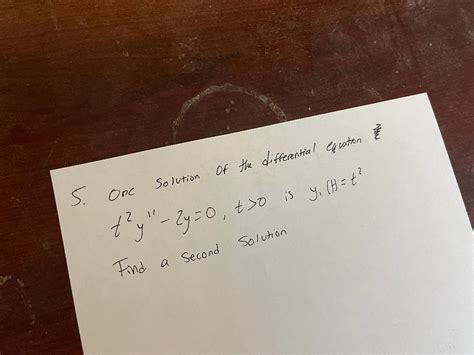 5. One Solution Of the differential equation
t² y'' - 2y = 0, t > 0 is y₁(t) = t²
Find a second solution